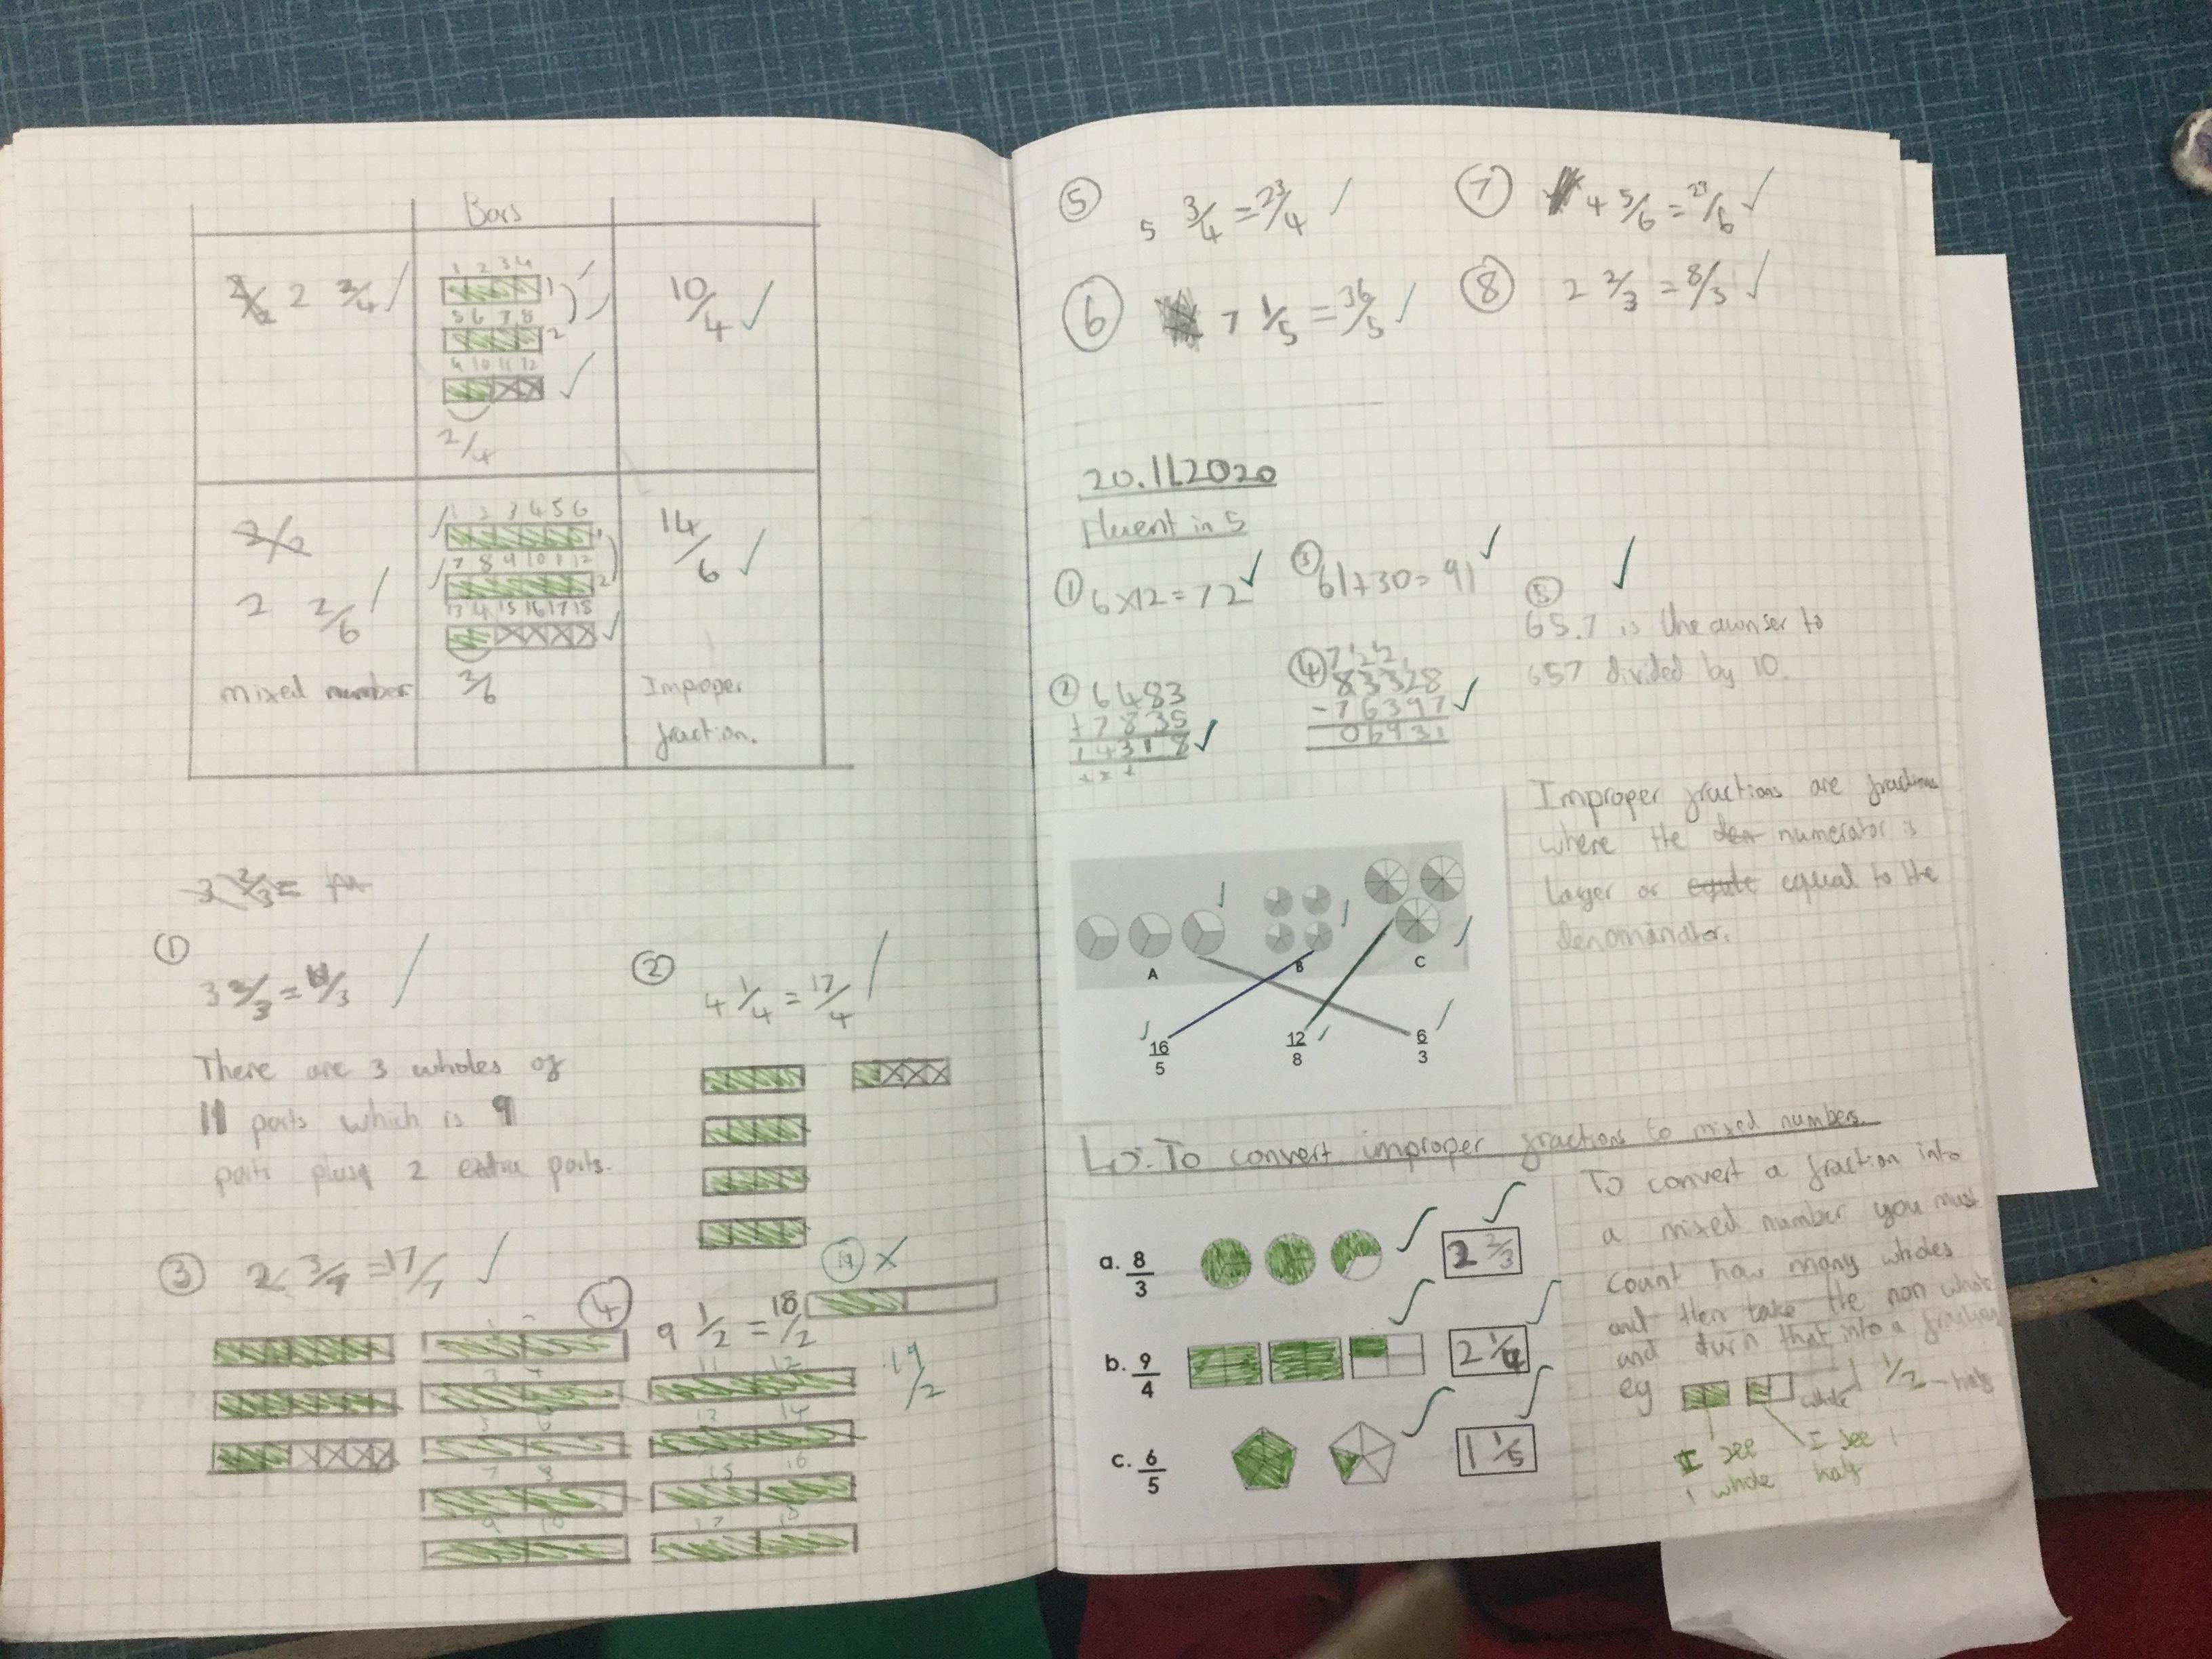 Bars
2 2/4
1 2 3 4
1
5 6 7 8
2
9 10 11 12
2/4
10/4
2/2
2 2/6
mixed number
1 2 3 4 5 6
1
7 8 9 10 11 12
2
13 14 15 16 17 18
2/6
14/6
Improper
fraction.
3 2/3 =
① 3 2/3 = 11/3
There are 3 wholes of
11 parts which is 9
parts plus 2 extra parts.
② 4 1/4 = 17/4
③ 2 3/7 = 17/7
④ 9 1/2 = 18/2
19
19/2
3 4
5 6
7 8
9 10
11 12
13 14
15 16
17 18
⑤ 5 3/4 = 23/4
⑥ 7 1/5 = 36/5
⑦ 4 5/6 = 29/6
⑧ 2 2/3 = 8/3
20.11.2020
Fluent in 5
① 6 x 12 = 72
② 6483
+ 7835
14318
③ 61 + 30 = 91
④ 83328
- 76397
06931
⑤
65.7 is the awnser to
657 divided by 10.
A
B
C
16/5
12/8
6/3
Improper fractions are fractions
where the den numerator is
larger or equle equal to the
denomanator.
LO: To convert improper fractions to mixed numbers.
a. 8/3
2 2/3
b. 9/4
2 1/4
c. 6/5
1 1/5
To convert a fraction into
a mixed number you must
count how many wholes
and then take the non whole
and turn that into a fraction
eg
whole
1/2 - half
I see
1 whole
I see 1
half